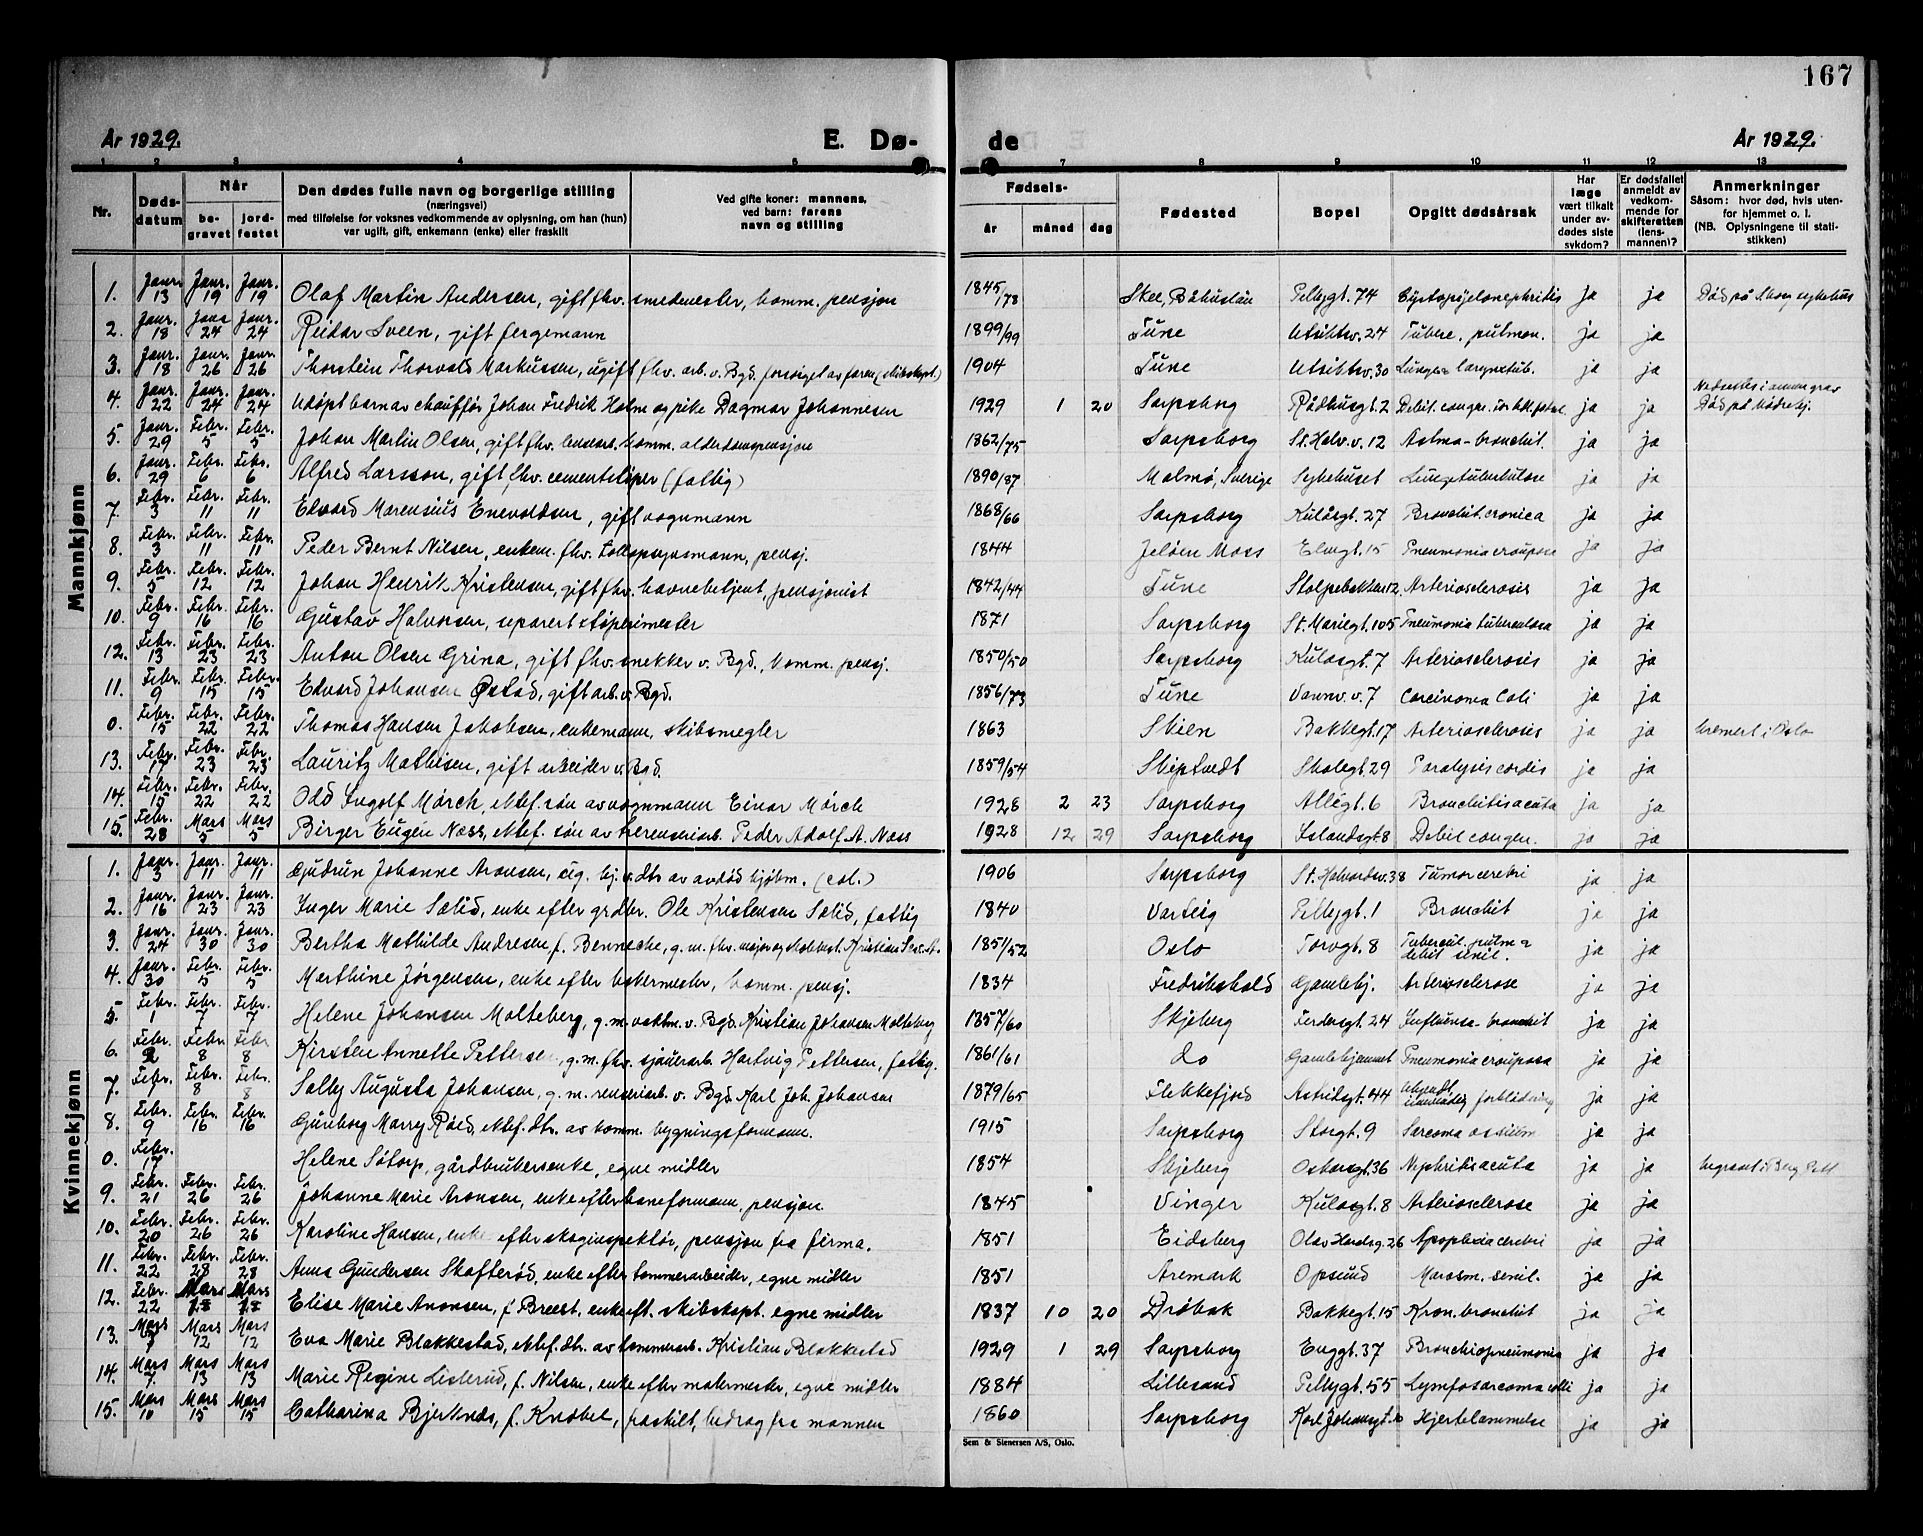 167
År 1929. E. Dø- de År 1929.
1 2 3 4 5 7 8 9 10 11 12 13
Nr. Døds-datum Når be-gravet jord-festet Den dødes fulle navn og borgerlige stilling (næringsvei) med tilføielse for voksnes vedkommende av oplysning, om han (hun) var ugift, gift, enkemann (enke) eller fraskilt Ved gifte koner: mannens, ved barn: farens navn og stilling Fødsels- år måned dag Fødested Bopel Opgitt dødsårsak Har læge vært tilkalt under av-dødes siste sykdom? Er dødsfallet anmeldt av vedkom-mende for skifteretten (lens-mannen)? Anmerkninger Såsom: hvor død, hvis uten-for hjemmet o. l. (NB. Oplysningene til stati-stikken)
Mannkjønn
1. Janr. 13 Janr. 19 Janr. 19 Olaf Martin Andersen, gift fhv. smedmester, komm. pensjon 1845/78 Skee, Båhuslän Pellygt. 74 Cystopyelonephritis ja ja Død på Sborg sykehus
2. Janr. 18 Janr 24 Janr. 24 Reidar Sveen, gift fergemann 1899/99 Tune Utsiktsv. 24 Tuberc. pulmon. ja ja
3. Janr. 18 Janr. 26 Janr. 26 Thorstein Thorvald Markussen, ugift fhv. arb. v. Bgd. forsørget av faren (skibskapt.) 1904 Tune Utsiktsv. 30 Lunge- laryngtub. ja ja
4. Janr. 22 Janr. 24 Janr. 24 Udøpt barn av chauffør Johan Fredrik Holm og pike Dagmar Johannesen 1929 1 20 Sarpsborg Rådhusgt. 2 Debil. congen. ja ja Nedsettes i amme grav Død på Mødrehj.
5. Janr. 29 Febr. 5 Febr. 5 Johan Martin Olsen, gift fhv. lensearb. komm. alderdomspensjon 1862/75 Sarpsborg St. Halv. v. 12 Astma-bronchit. ja ja
6. Janr. 29 Febr. 6 Febr. 6 Alfred Larsson, gift fhv. cementstøper (fattig) 1890/87 Malmø, Sverige Sykehuset Lungetuberkulose ja ja
7. Febr. 3 Febr. 11 Febr. 11 Edvard Marensius Enevoldsen, gift vognmann 1868/66 Sarpsborg Kulåsgt. 27 Bronchit. cronica ja ja
8. Febr. 3 Febr. 11 Febr. 11 Peder Bernt Nilsen, enkem. fhv. tollopsynsmann, pensj. 1844 Jeløen Moss Elvegt. 15 Pneumonia crouposa ja ja
9. Febr. 5 Febr. 12 Febr. 12 Johan Henrik Kristensen, gift fhv. havnebetjent, pensjonist 1842/44 Tune Stolpebakken 12. Arteriosclerosis ja ja
10. Febr. 9 Febr. 16 Febr. 16 Gustav Halvorsen, separert støperimester 1871 Sarpsborg St. Mariegt. 105 Pneumonia tuberculosa ja ja
12. Febr. 13 Febr. 23 Febr. 23 Anton Olsen Grina, gift fhv. snekker v. Bgd., komm. pensj. 1850/50 Sarpsborg Kulåsgt. 7 Arteriosclerosis ja ja
11. Febr. 9 Febr. 15 Febr. 15 Edvard Johansen Østad, gift arb. v. Bgd. 1856/73 Tune Vannv. v. 7 Carcinoma Coli ja ja
0. Febr. 15 Febr. 22 Febr. 22 Thomas Hansen Jakobsen, enkemann, skibsmegler 1863 Skien Bakkegt. 17 Arteriosclerosis ja ja kremert i Oslo
13. Febr. 17 Febr. 23 Febr. 23 Lauritz Mathisen, gift arbeider v. Bgd. 1859/54 Skiptvedt Skolegt. 29 Paralysis cordis ja ja
14. Febr. 15 Febr. 22 Febr. 22 Odd Ingolf Mørch, ektef. søn av vognmann Einar Mørch 1928 2 23 Sarpsborg Allégt. 6 Bronchitis acuta ja ja
15. Febr. 28 Mars 5 Mars 5 Birger Eugen Næss, ektef. søn av renseriarb. Peder Adolf A. Næss 1928 12 29 Sarpsborg Islandsgt. 8 Debil congen. ja ja
Kvinnekjønn
1. Janr. 3 Janr. 11 Janr. 11 Gudrun Johanne Aronsen, ug. hj. v. dtr av avdød kjøbm. (col.) 1906 Sarpsborg St. Halvordsv. 38 Tumor cerebri ja ja
2. Janr. 16 Janr. 23 Janr. 23 Inger Marie Sælid, enke efter grdbr. Ole Kristensen Sælid, fattig 1840 Varteig Pellygt. 1 Bronchit ja ja
3. Janr. 24 Janr. 30 Janr. 30 Bertha Mathilde Andresen f. Benneche, g. m. fhv. major og Kristian 1851/52 Oslo Torvgt. 8 Tubercul. pulm & debil senil. ja ja
4. Janr. 30 Febr. 5 Febr. 5 Marthine Jørgensen, enke efter bakermester, komm. pensj. 1834 Fredrikshald Gamlehj. Arteriosclerose ja ja
5. Febr. 1 Febr. 7 Febr. 7 Helene Johansen Molteberg, g. m. vaktm. v. Bgd. Kristian Johansen Molteberg 1857/60 Skjeberg Ferdersgt. 24 Influensa-bronchit ja ja
6. Febr. 2 Febr 8 Febr 8 Kirsten Annette Pettersen, g. m. fhv. sjauerarb. Hartvig Pettersen, fattig. 1861/61 do Gamlehjemmet Pneumonia crouposa ja ja
7. Febr. 1 Febr. 8 Febr. 8 Solby Augusta Johansen, g. m. renseriarb. v. Bgd. Karl Joh. Johansen 1879/65 Flekkefjord Astridsgt. 44 forblødning ja ja
8. Febr. 9 Febr. 16 Febr. 16 Gunborg Marry Røed, ektef. dtr. av komm. bygningsformann. 1915 Sarpsborg Storgt. 9 Sarcoma ossium ja ja
0. Febr. 17 Helene Søtorp, gårdbrukersenke, egne midler 1854 Skjeberg Oskarsgt. 36 Nephritis acuta ja ja begravet i Berg
9. Febr. 21 Febr. 26 Febr. 26 Johanne Marie Aronsen, enke efter baneformann, pensjon 1845 Vinger Kulåsgt. 8 Arteriosclerose ja ja
10. Febr. 20 Febr. 26 Febr. 26 Karoline Hansen, enke efter skoginspektør, pensjon fra firma. 1851 Eidsberg Olav Haralsg. 26 Apoplexia cerebri ja ja
11. Febr. 22 Febr. 28 Febr. 28 Anna Gundersen Skofterød, enke efter tømmerarbeider, egne midler 1851 Aremark Opsund Marasm. senil. ja ja
12. Febr. 22 Mars Mars Elise Marie Aronsen, f. Breest. enke eft. skibskapt. egne midler 1837 10 20 Drøbak Bakkegt. 15 Kron. bronchit ja ja
13. Mars 7 Mars 12 Mars 12 Eva Marie Blakkestad, ektef. dtr. av tømmerarb. Kristian Blakkestad 1929 1 29 Sarpsborg Enggt. 37 Bronchiopneumonia ja ja
14. Mars 7. Mars 13 Mars 13 Marie Regine Listerud, f. Nilsen, enke efter malermester, egne midler 1884 Lillesand Pellygt. 55 Lymfosarcoma colli ja ja
15. Mars 10 Mars 15 Mars 15 Catharina Bjerknæs, f. Knobel, fraskilt, bidrag fra mannen 1860 Sarpsborg Karl Johansgt. Hjertelammelse ja ja
Sem & Stenersen A/S, Oslo.